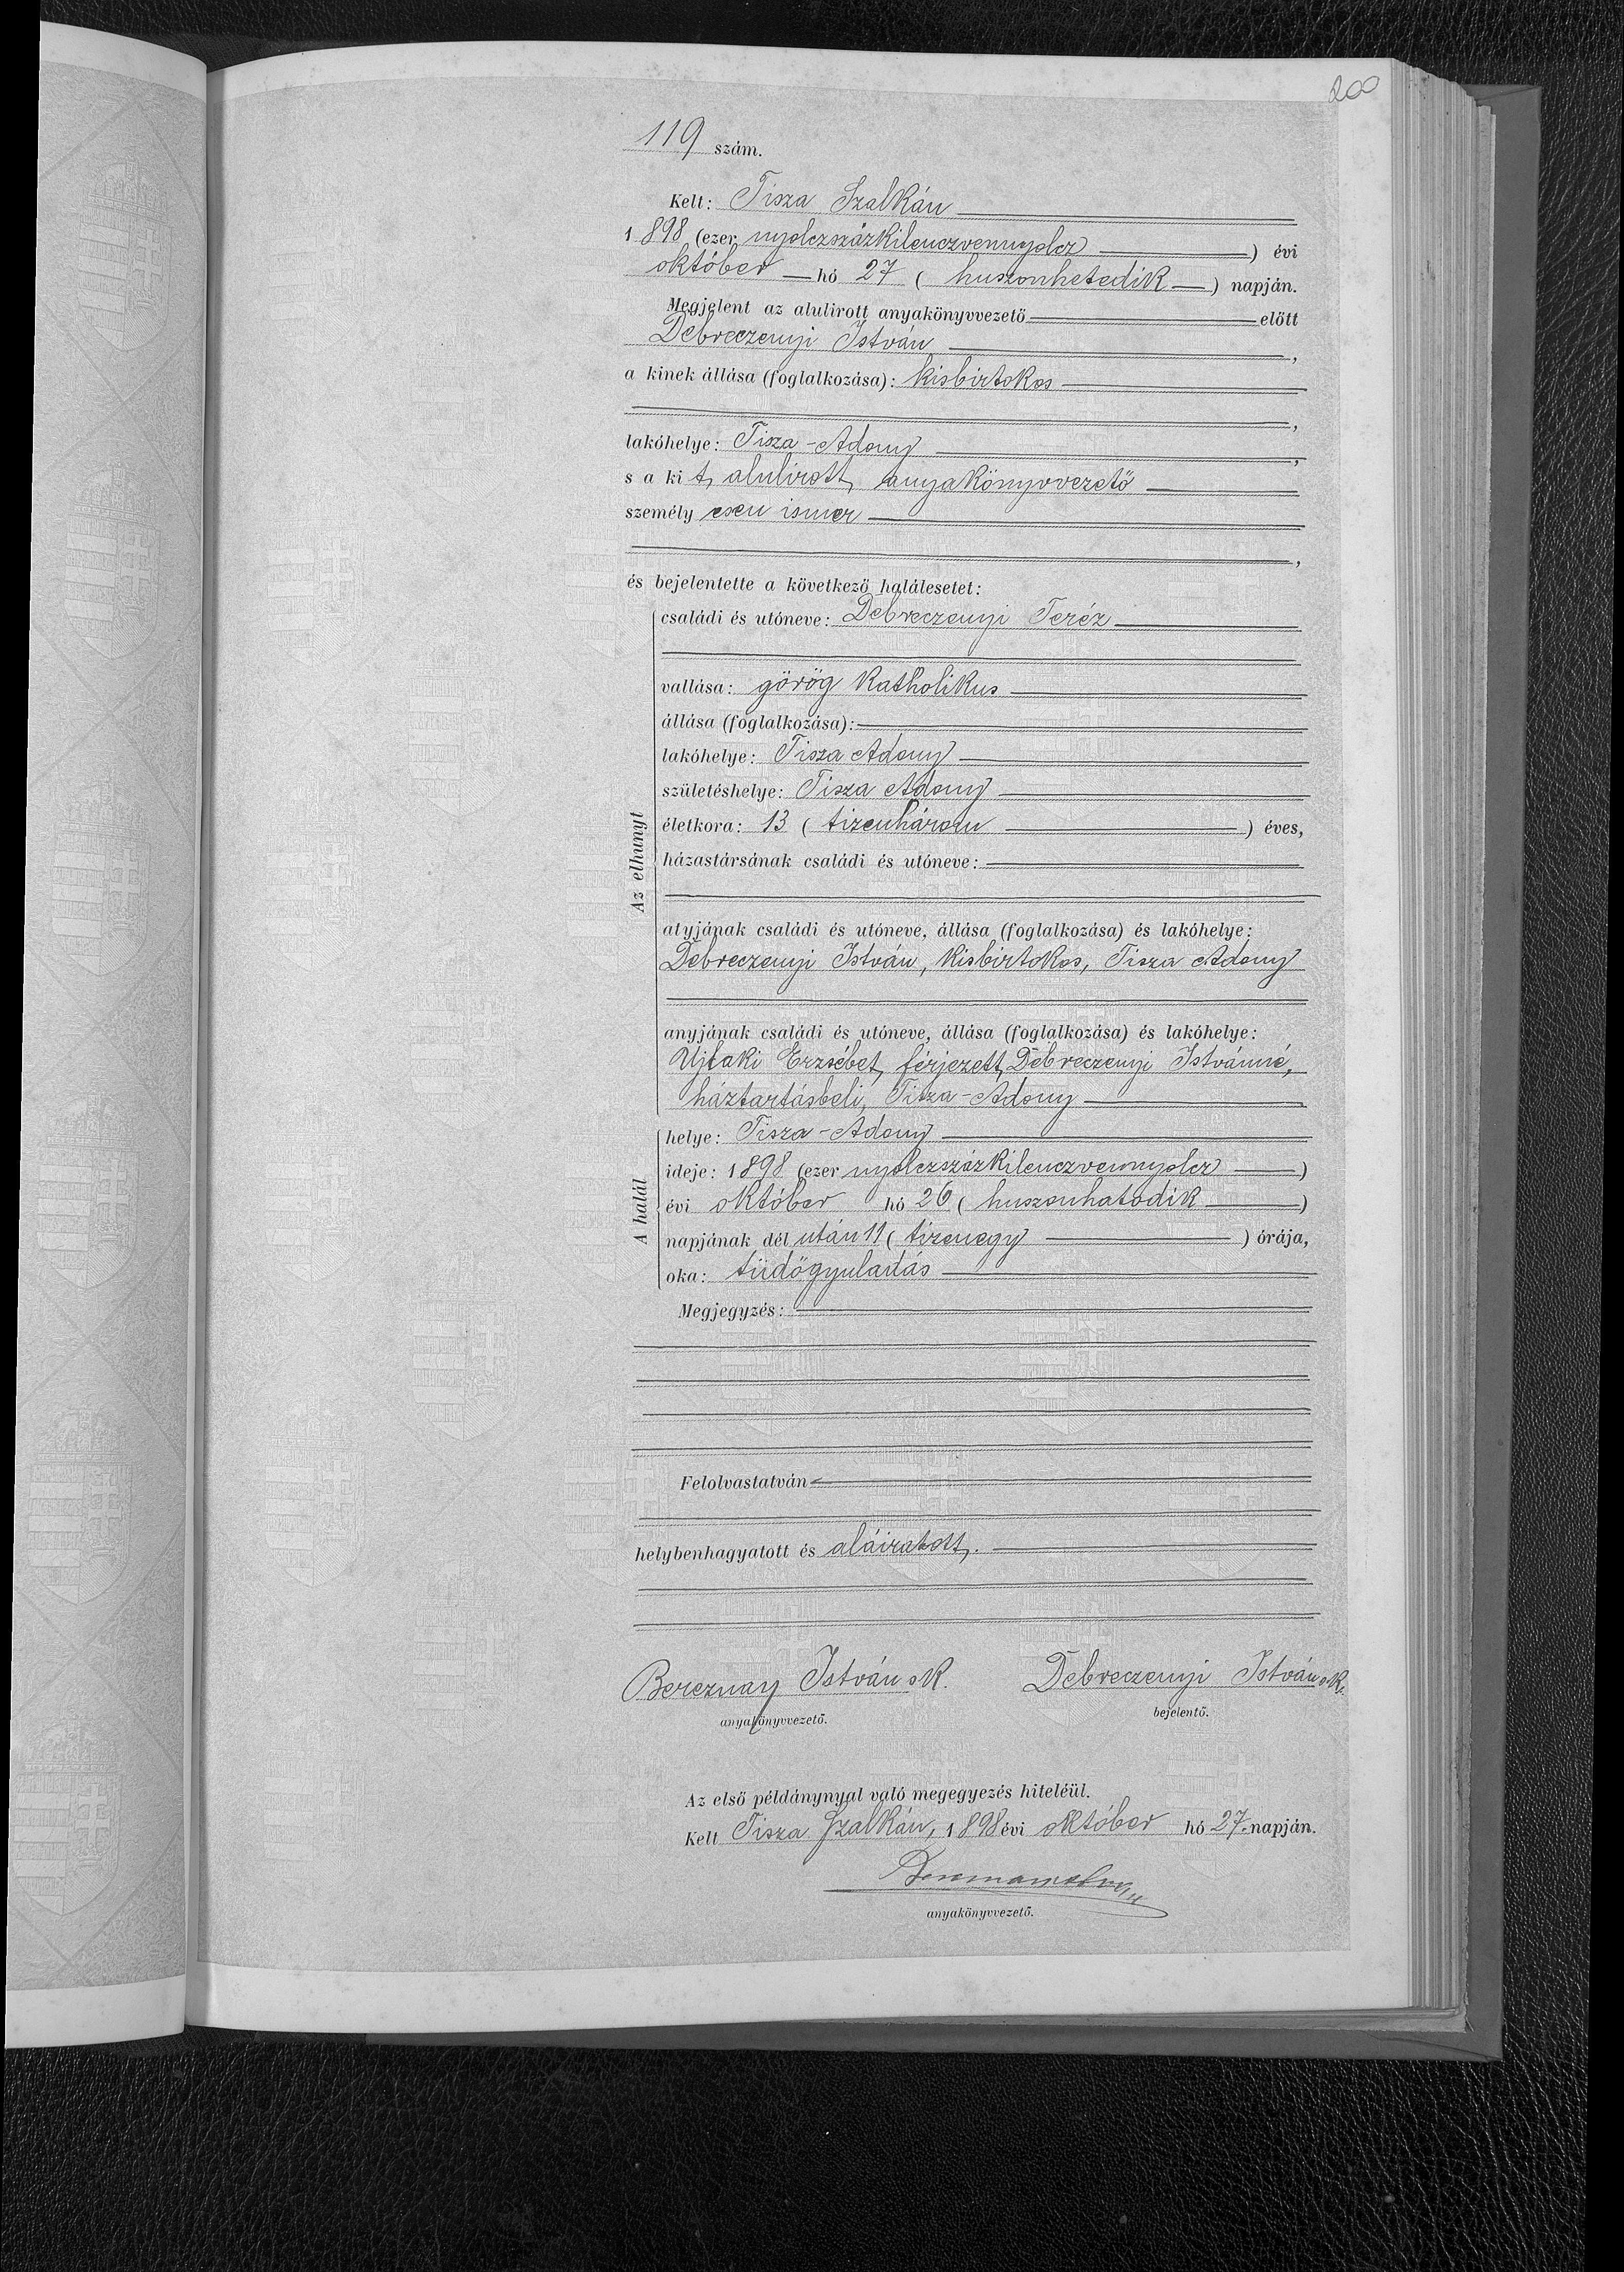 200
119 szám.
Kelt: Tisza Szalkán
1898 (ezer nyolczszázkilenczvennyolcz) évi
október hó 27 (huszonhetedik) napján.
Megjelent az alulirott anyakönyvvezető előtt
Debreczenyi István,
a kinek állása (foglalkozása): kisbirtokos
,
lakóhelye: Tisza-Adony,
s a kit, alulirott, anyakönyvvezető
személyesen ismer
,
és bejelentette a következő halálesetet:
Az elhunyt
családi és utóneve: Debreczenyi Teréz
vallása: görög katholikus
állása (foglalkozása):
lakóhelye: Tisza Adony
születéshelye: Tisza Adony
életkora: 13 (tizenhárom) éves,
házastársának családi és utóneve:
atyjának családi és utóneve, állása (foglalkozása) és lakóhelye:
Debreczenyi István, kisbirtokos, Tisza Adony
anyjának családi és utóneve, állása (foglalkozása) és lakóhelye:
Ujlaki Erzsébet, férjezett, Debreczenyi Istvánné,
háztartásbeli, Tisza-Adony
A halál
helye: Tisza-Adony
ideje: 1898 (ezer nyolczszázkilenczvennyolcz)
évi október hó 26 (huszonhatodik)
napjának dél után 11 (tizenegy) órája,
oka: tüdőgyuladás
Megjegyzés:
Felolvastatván
helybenhagyatott és aláiratott.
Bereznay István sk. Debreczenyi István sk.
anyakönyvvezető. bejelentő.
Az első példánynyal való megegyezés hiteléül.
Kelt Tisza Szalkán, 1898 évi október hó 27. napján.
anyakönyvvezető.